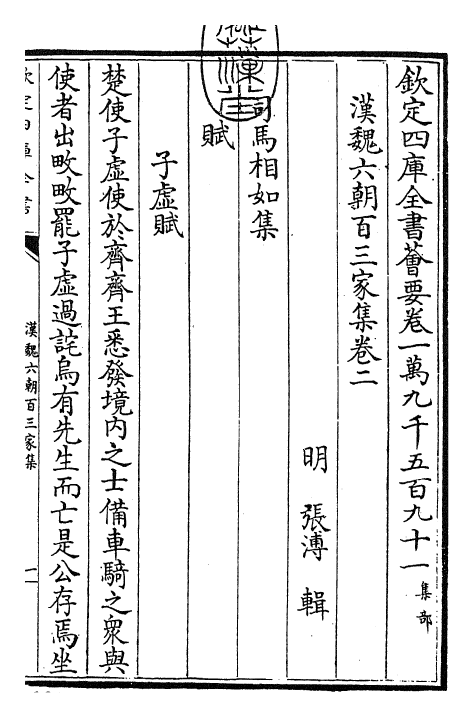 欽定四庫全書薈要卷一萬九千五百九十一集部
漢魏六朝百三家集卷二
明 張溥 輯
司馬相如集
賦
子虛賦
楚使子虛使於齊齊王悉發境內之士備車騎之衆與
使者出畋畋罷子虛過詫烏有先生而亡是公存焉坐
欽定四庫全書
漢魏六朝百三家集
一